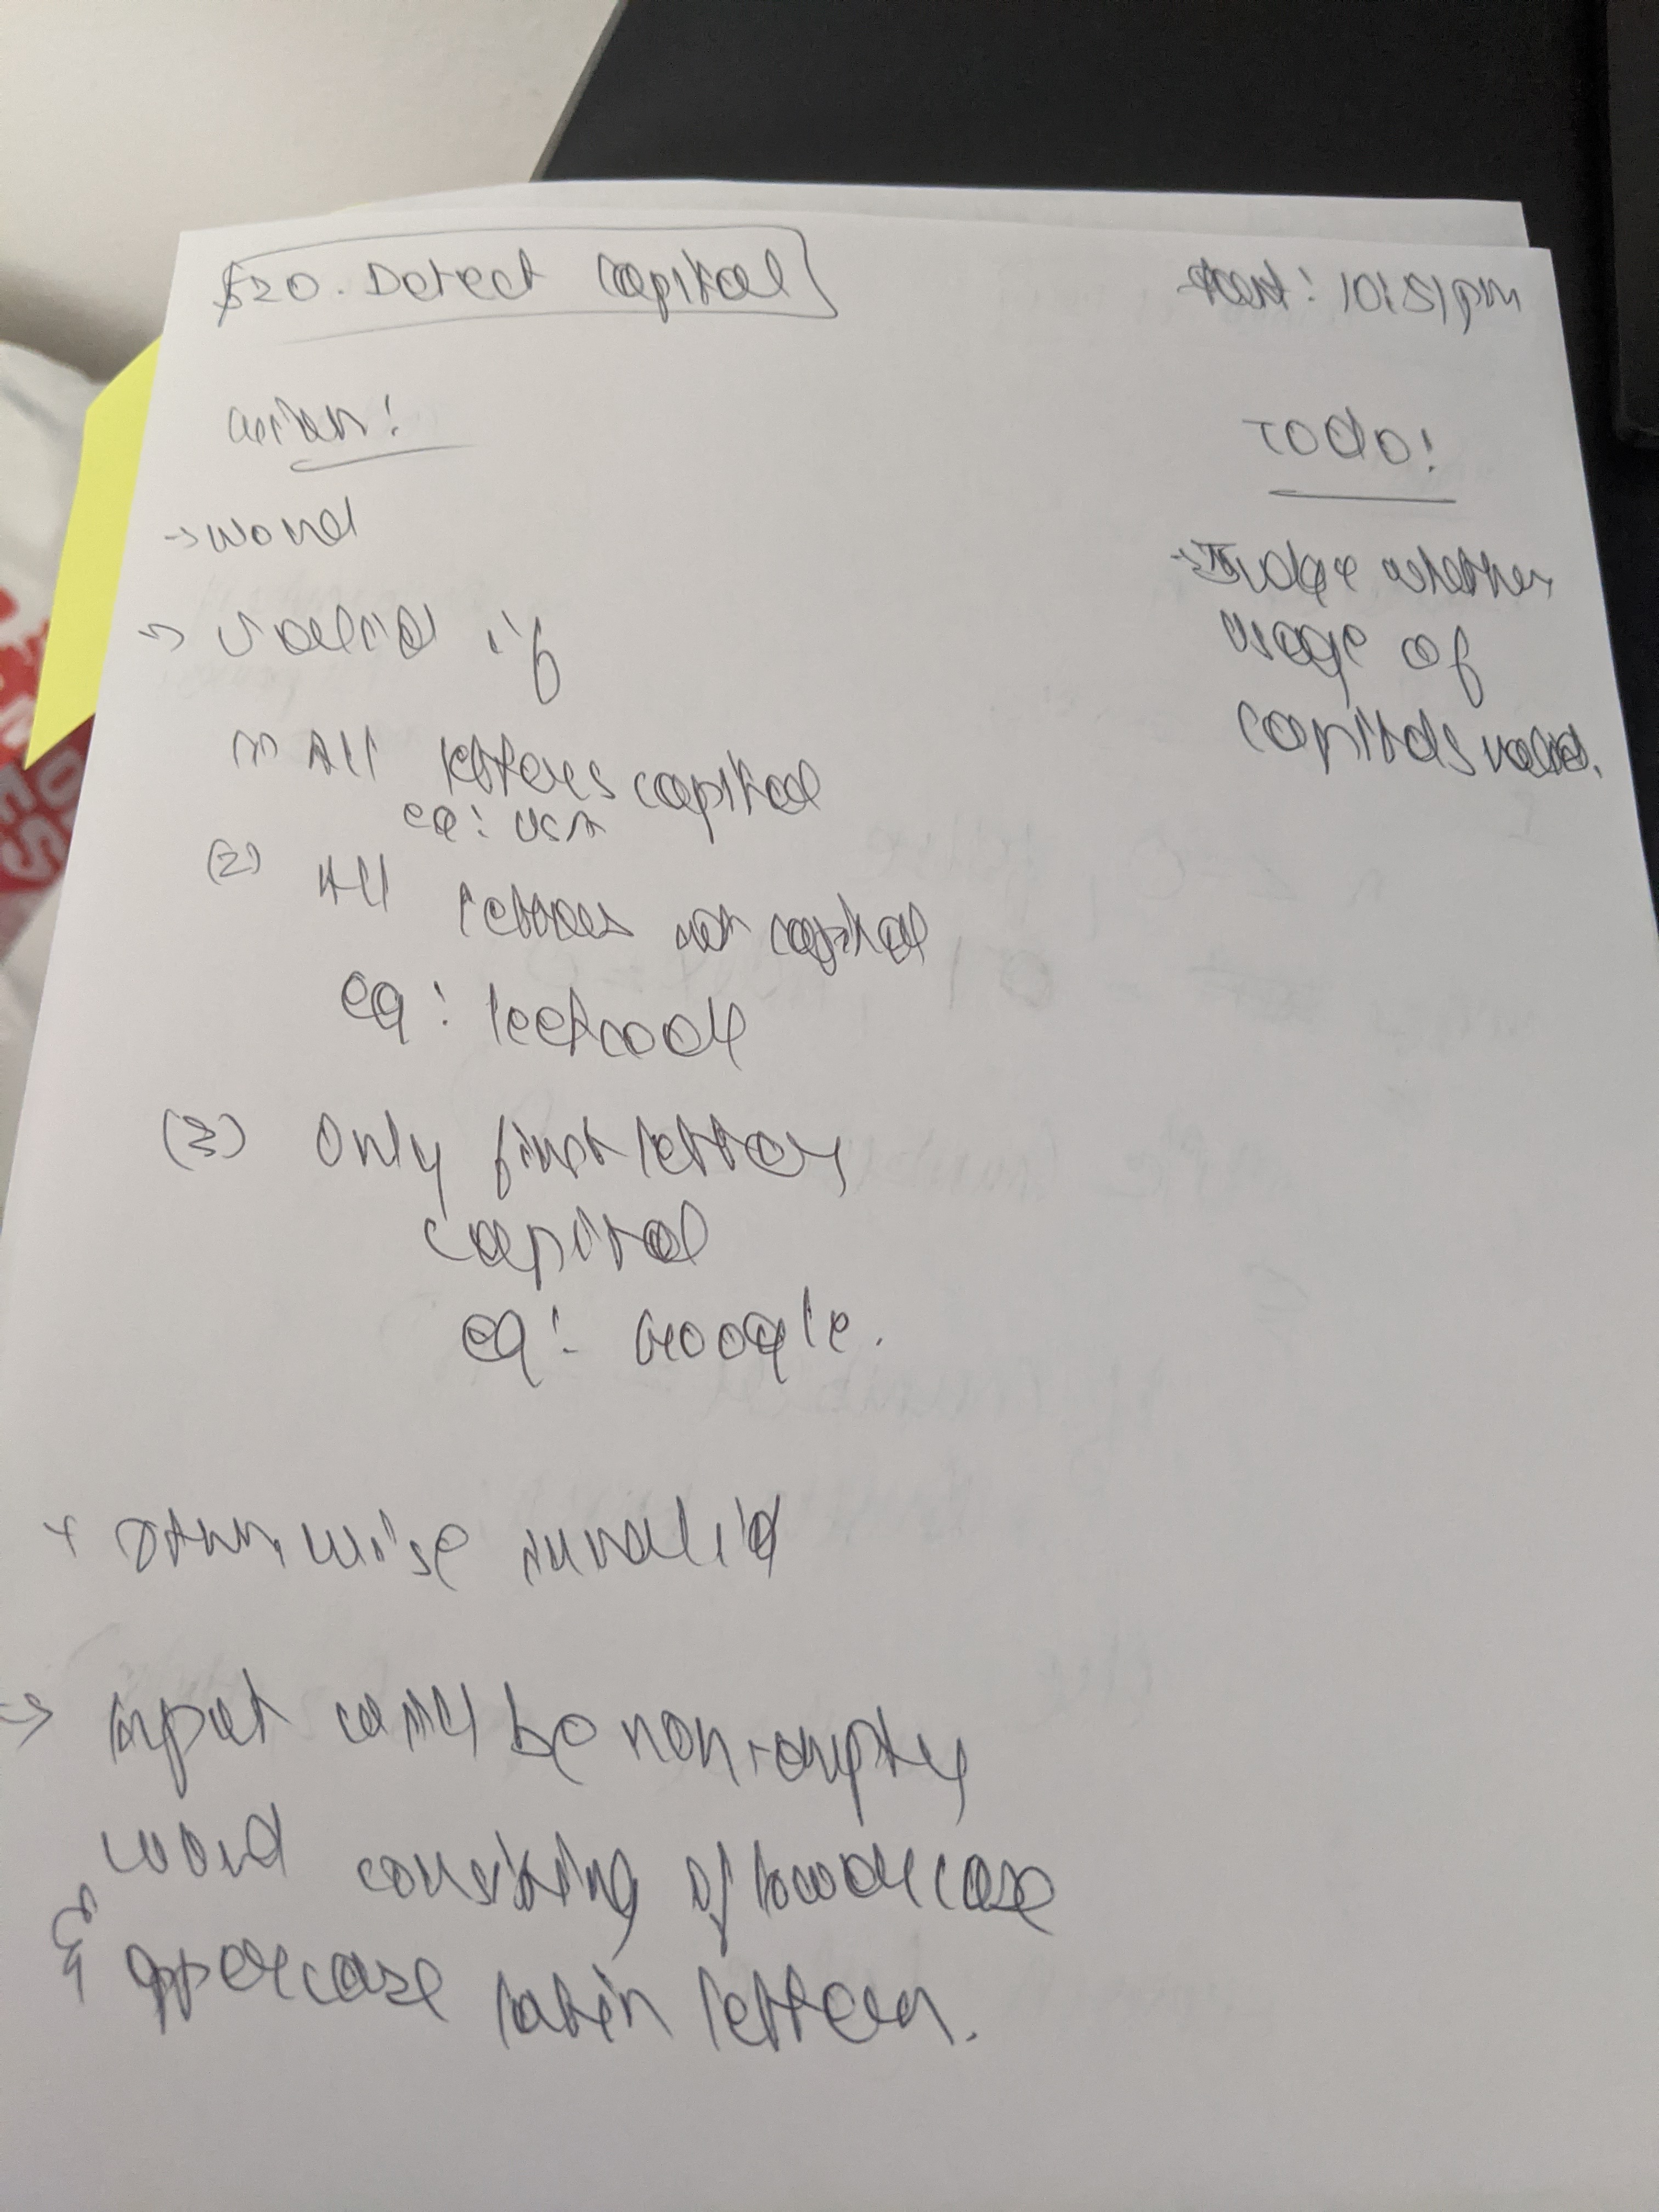 520. Detect Capital
start: 10:51pm
Given:
→ word
→ valid if
(1) All letters capital
eg: USA
(2) All letters not capital
eg: leetcode
(3) Only first letter
capital
eg: Google.
+ Otherwise invalid
→ input will be non-empty
word consisting of lowercase
& uppercase latin letters.
Todo:
→ Judge whether
usage of
capitals valid.